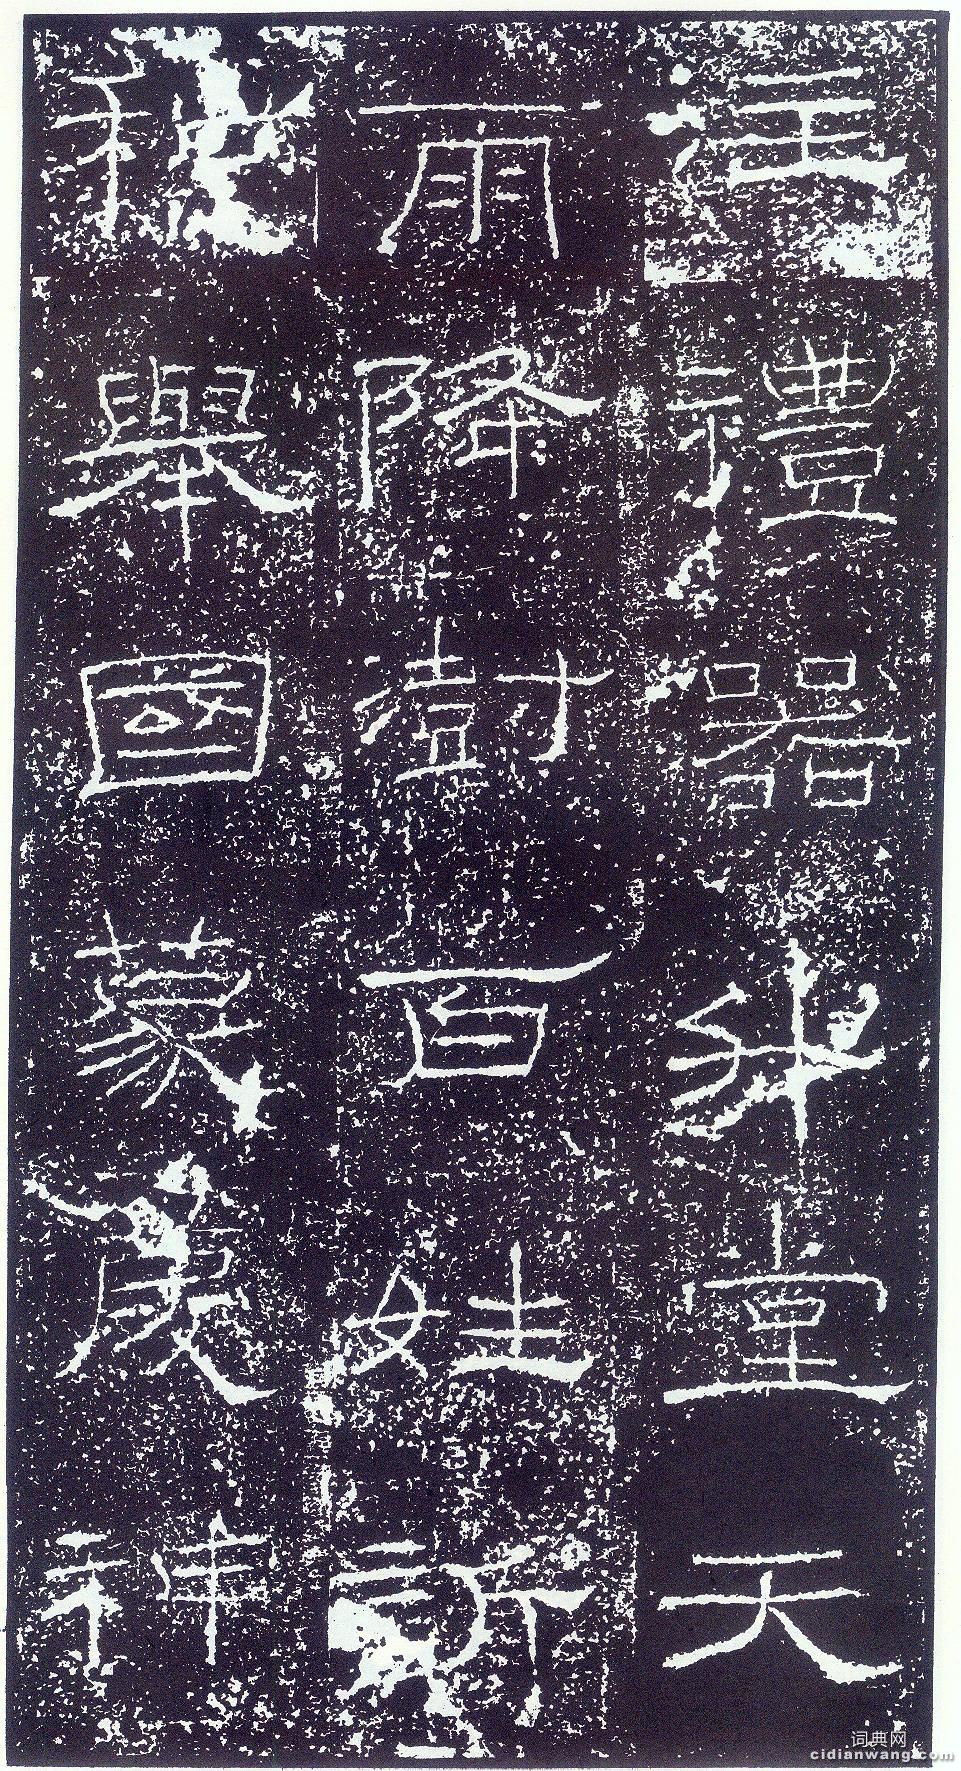 注禮器升堂天
雨降澍百姓訢
和舉國蒙慶神
词典网
cidianwang.com